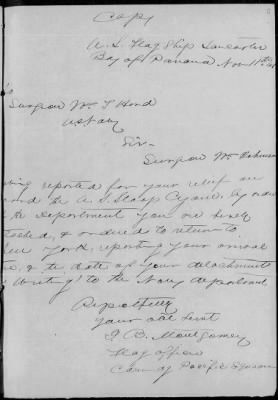 Copy
U.S. Flag Ship Lancaster
Bay of Panama Nov 11th
Surgeon Wm T Hord
U S Navy
Sir-
Surgeon Wm Johnson
ing reported for your relief on
board the U.S. Sloop Cyane, by order
the Department you are hereby
tached, & ordered to return to
New York, reporting your arrival
& the date of your detachment
writing to the Navy Department
Respectfully
Your obt Servt
J B Montgomery
Flag Officer
Com'dg Pacific Squadron